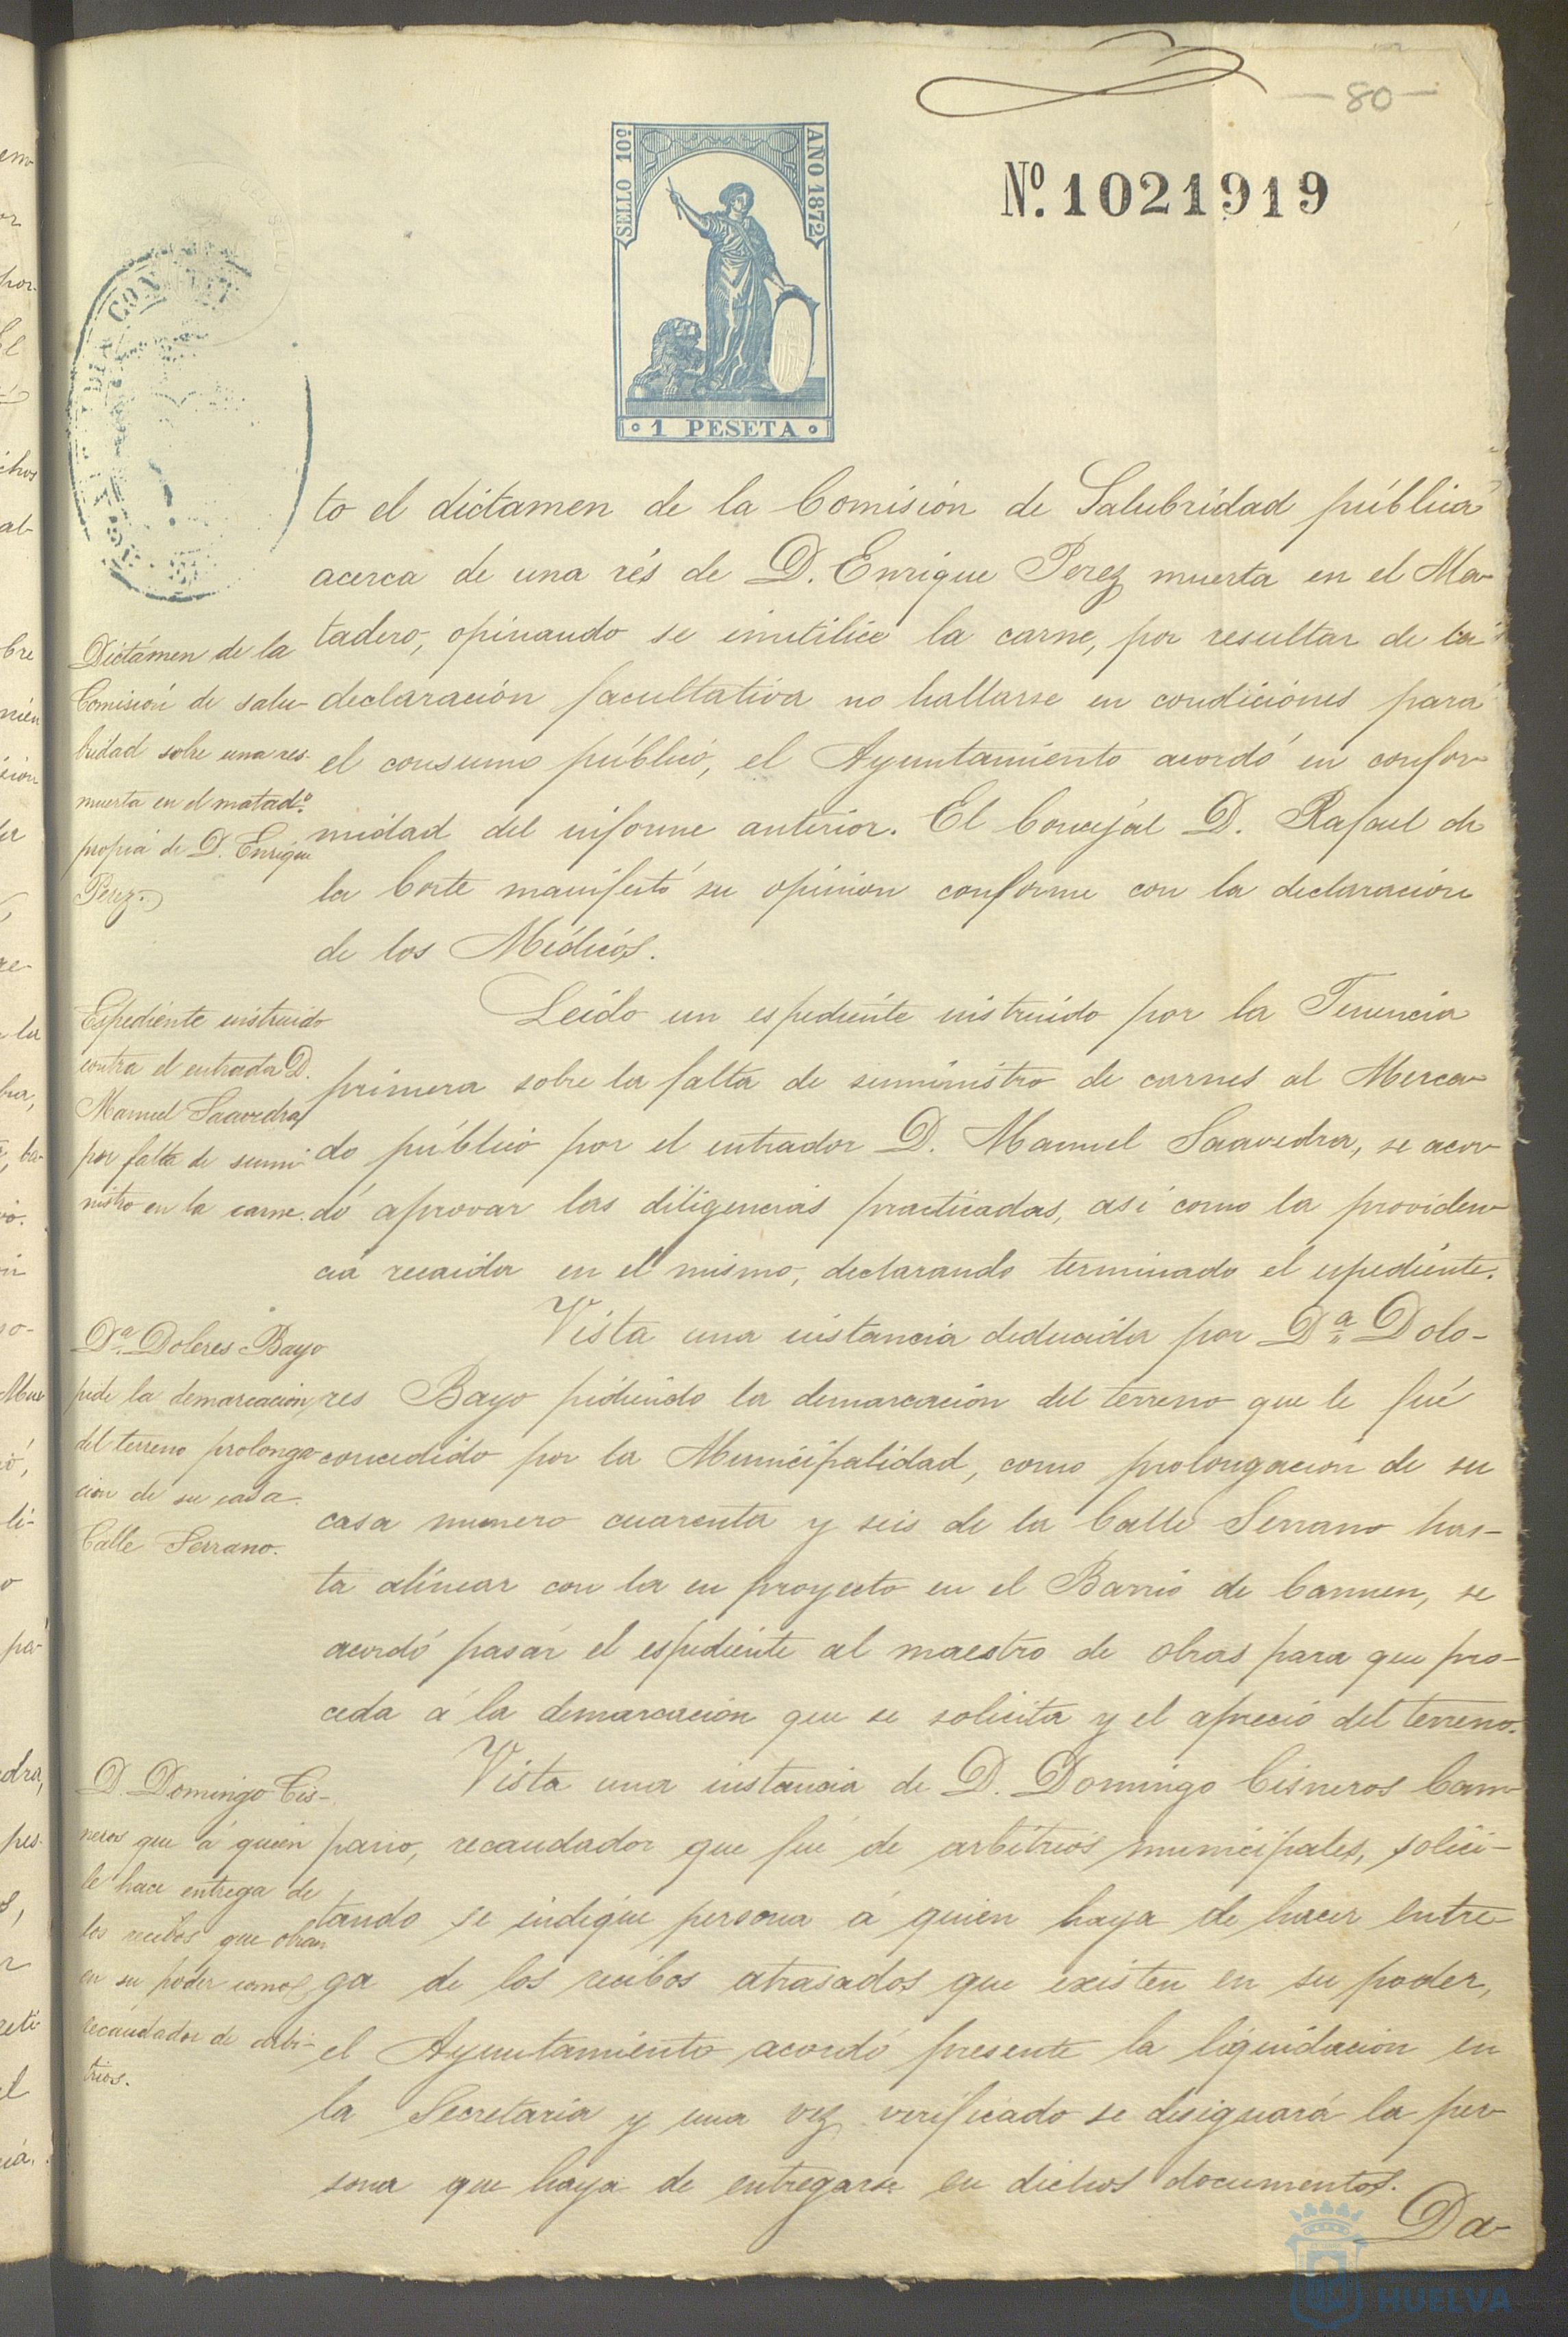 80
SELLO 10º
AÑO 1872
Nº. 1021919
1 PESETA
to el dictamen de la Comisión de Salubridad pública
acerca de una rés de D. Enrique Perez muerta en el Ma-
tadero, opinando se inutilice la carne, por resultar de la
declaración facultativa no hallarse en condiciónes para
el consumo público, el Ayuntamiento acordó en confor-
midad del informe anterior. El Concejal D. Rafael de
la Corte manifestó su opinion conforme con la declaración
de los Médicos.
Dictámen de la
Comisión de salu-
bridad sobre una res
muerta en el matadº.
propia de D. Enrique
Perez.
Leido un espediente instruido por la Tenencia
primera sobre la falta de suministro de carnes al Merca-
do público por el entrador D. Manuel Saavedra, se acor-
dó aprovar las diligencias practicadas, así como la providen-
cia recaida en el mismo, declarando terminado el espediente.
Espediente instruido
contra el entrada D.
Manuel Saavedra
por falta de sumi-
nistro en la carne.
Vista una instancia deducida por Dª. Dolo-
res Bayo pidiendo la demarcación del terreno que le fué
concedido por la Municipalidad, como prolongacion de su
casa numero cuarenta y seis de la Calle Serrano has-
ta alinear con la en proyecto en el Barrio de Carmen, se
acordó pasar el espediente al maestro de obras para que pro-
ceda á la demarcación que se solicita y el aprecio del terreno.
Dª. Dolores Bayo
pide la demarcacion
del terreno prolonga-
cion de su casa
Calle Serrano.
Vista una instancia de D. Domingo Cisneros Cam-
pario, recaudador que fué de arbitrios municipales, solici-
tando se indique persona á quien haya de hacer entre-
ga de los recibos atrasados que existen en su poder,
el Ayuntamiento acordó presente la liquidacion en
la Secretaria y una vez verificado se designará la per-
sona que haya de entregarse en dichos documentos.
D. Domingo Cis-
neros que á quien
le hace entrega de
los recibos que obran
en su poder como
recaudador de arbi-
trios.
Da-
HUELVA